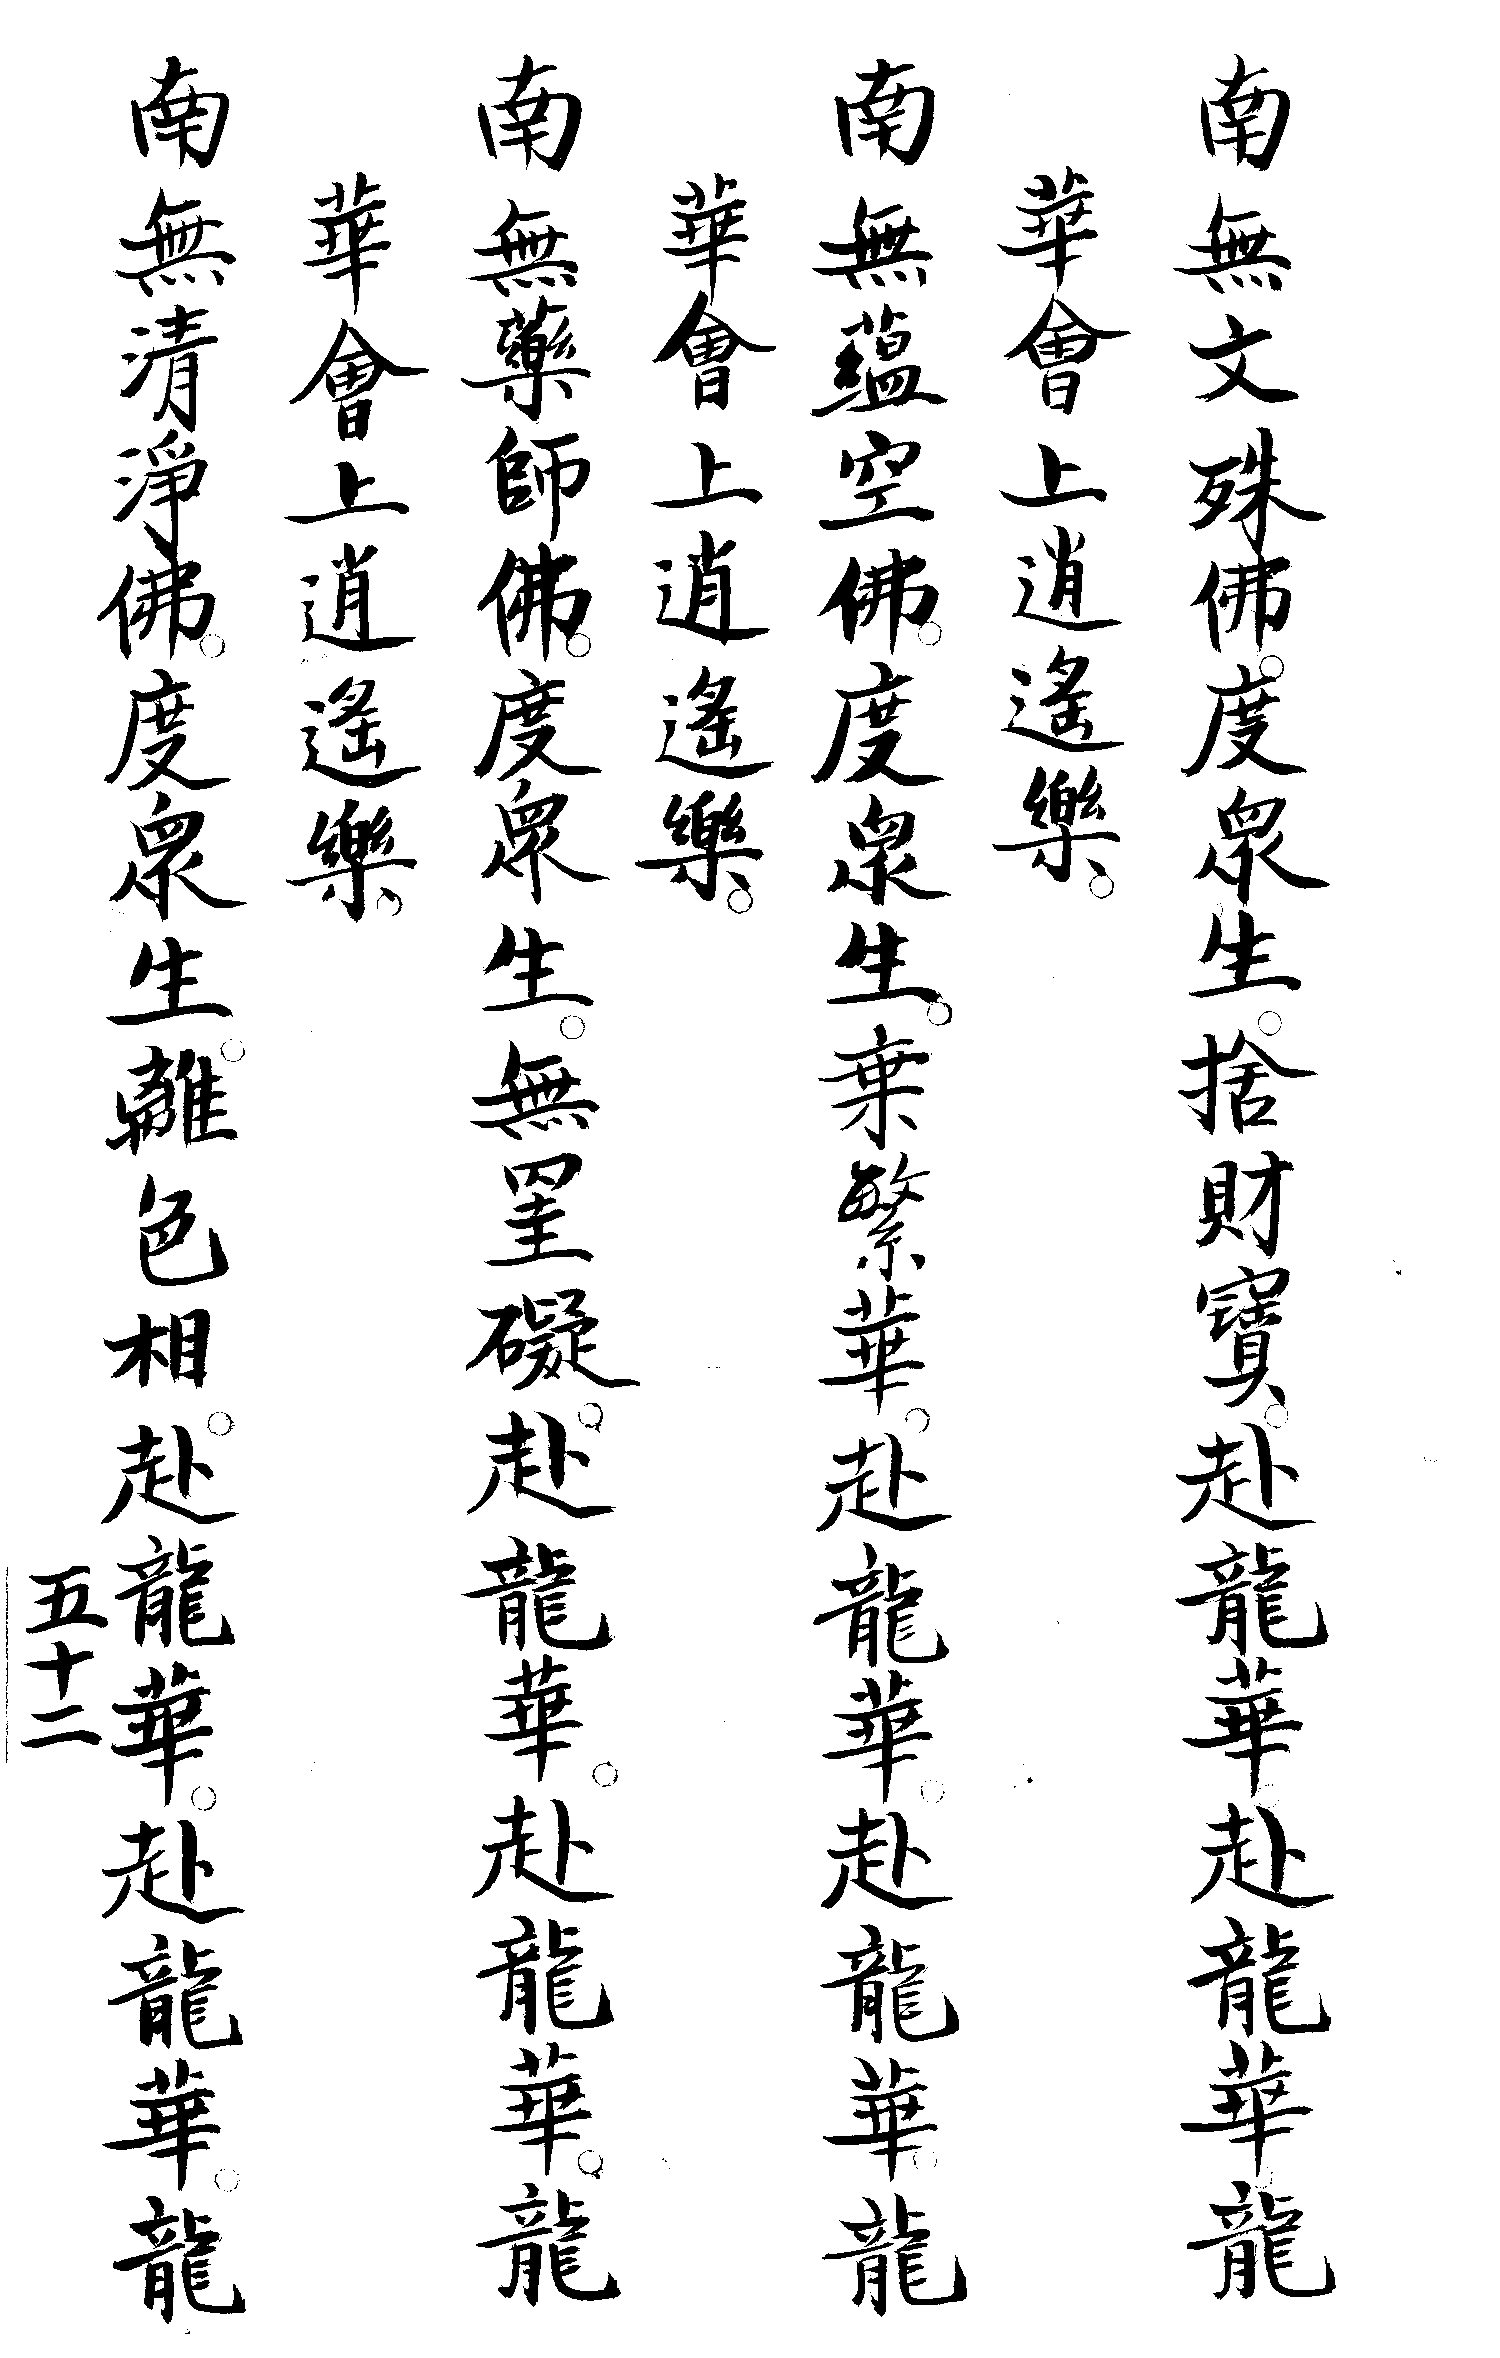 南無文殊佛。度眾生。捨財寶。赴龍華。赴龍華。龍
華會上逍遙樂。
南無蘊空佛。度眾生。棄繁華。赴龍華。赴龍華。龍
華會上逍遙樂。
南無藥師佛。度眾生。無罣礙。赴龍華。赴龍華。龍
華會上逍遙樂。
南無清淨佛。度眾生。離色相。赴龍華。赴龍華。龍
五十二